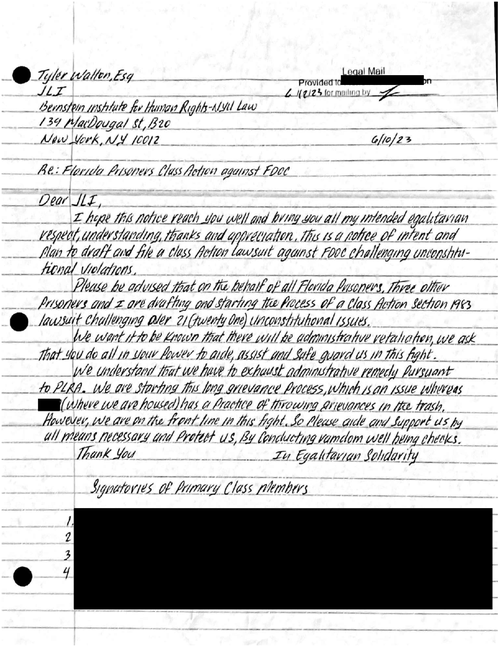 Tyler Walton, Esq
Legal Mail
Provided to
on
JLI
6/12/23 for mailing by
Bernstein institute for Human Rights-NYU Law
139 MacDougal St, B20
New York, NY 10012
6/10/23
Re: Florida Prisoners Class Action against FDOC
Dear JLI,
I hope this notice reach you well and bring you all my intended egalitarian
respect, understanding, thanks and appreciation. This is a notice of intent and
plan to draft and file a class Action lawsuit against FDOC challenging unconstitu-
tional violations.
Please be advised that on the behalf of all Florida Prisoners, Three other
Prisoners and I are drafting and starting the Process of a Class Action Section 1983
lawsuit Challenging over 21 (twenty One) unconstitutional issues.
We want it to be known that there will be administrative retaliation, we ask
that you do all in your Power to aide, assist and safe guard us in this fight.
We understand that we have to exhaust administrative remedy Pursuant
to PLRA. We are starting this long grievance Process, which is an issue whereas
(where we are housed) has a Practice of throwing grievances in the trash.
However, we are on the front line in this fight. So Please aide and Support us by
all means necessary and Protect us, By Conducting ramdom well being checks.
Thank You
In Egalitarian Solidarity
Signatories of Primary Class Members
1.
2
3
4